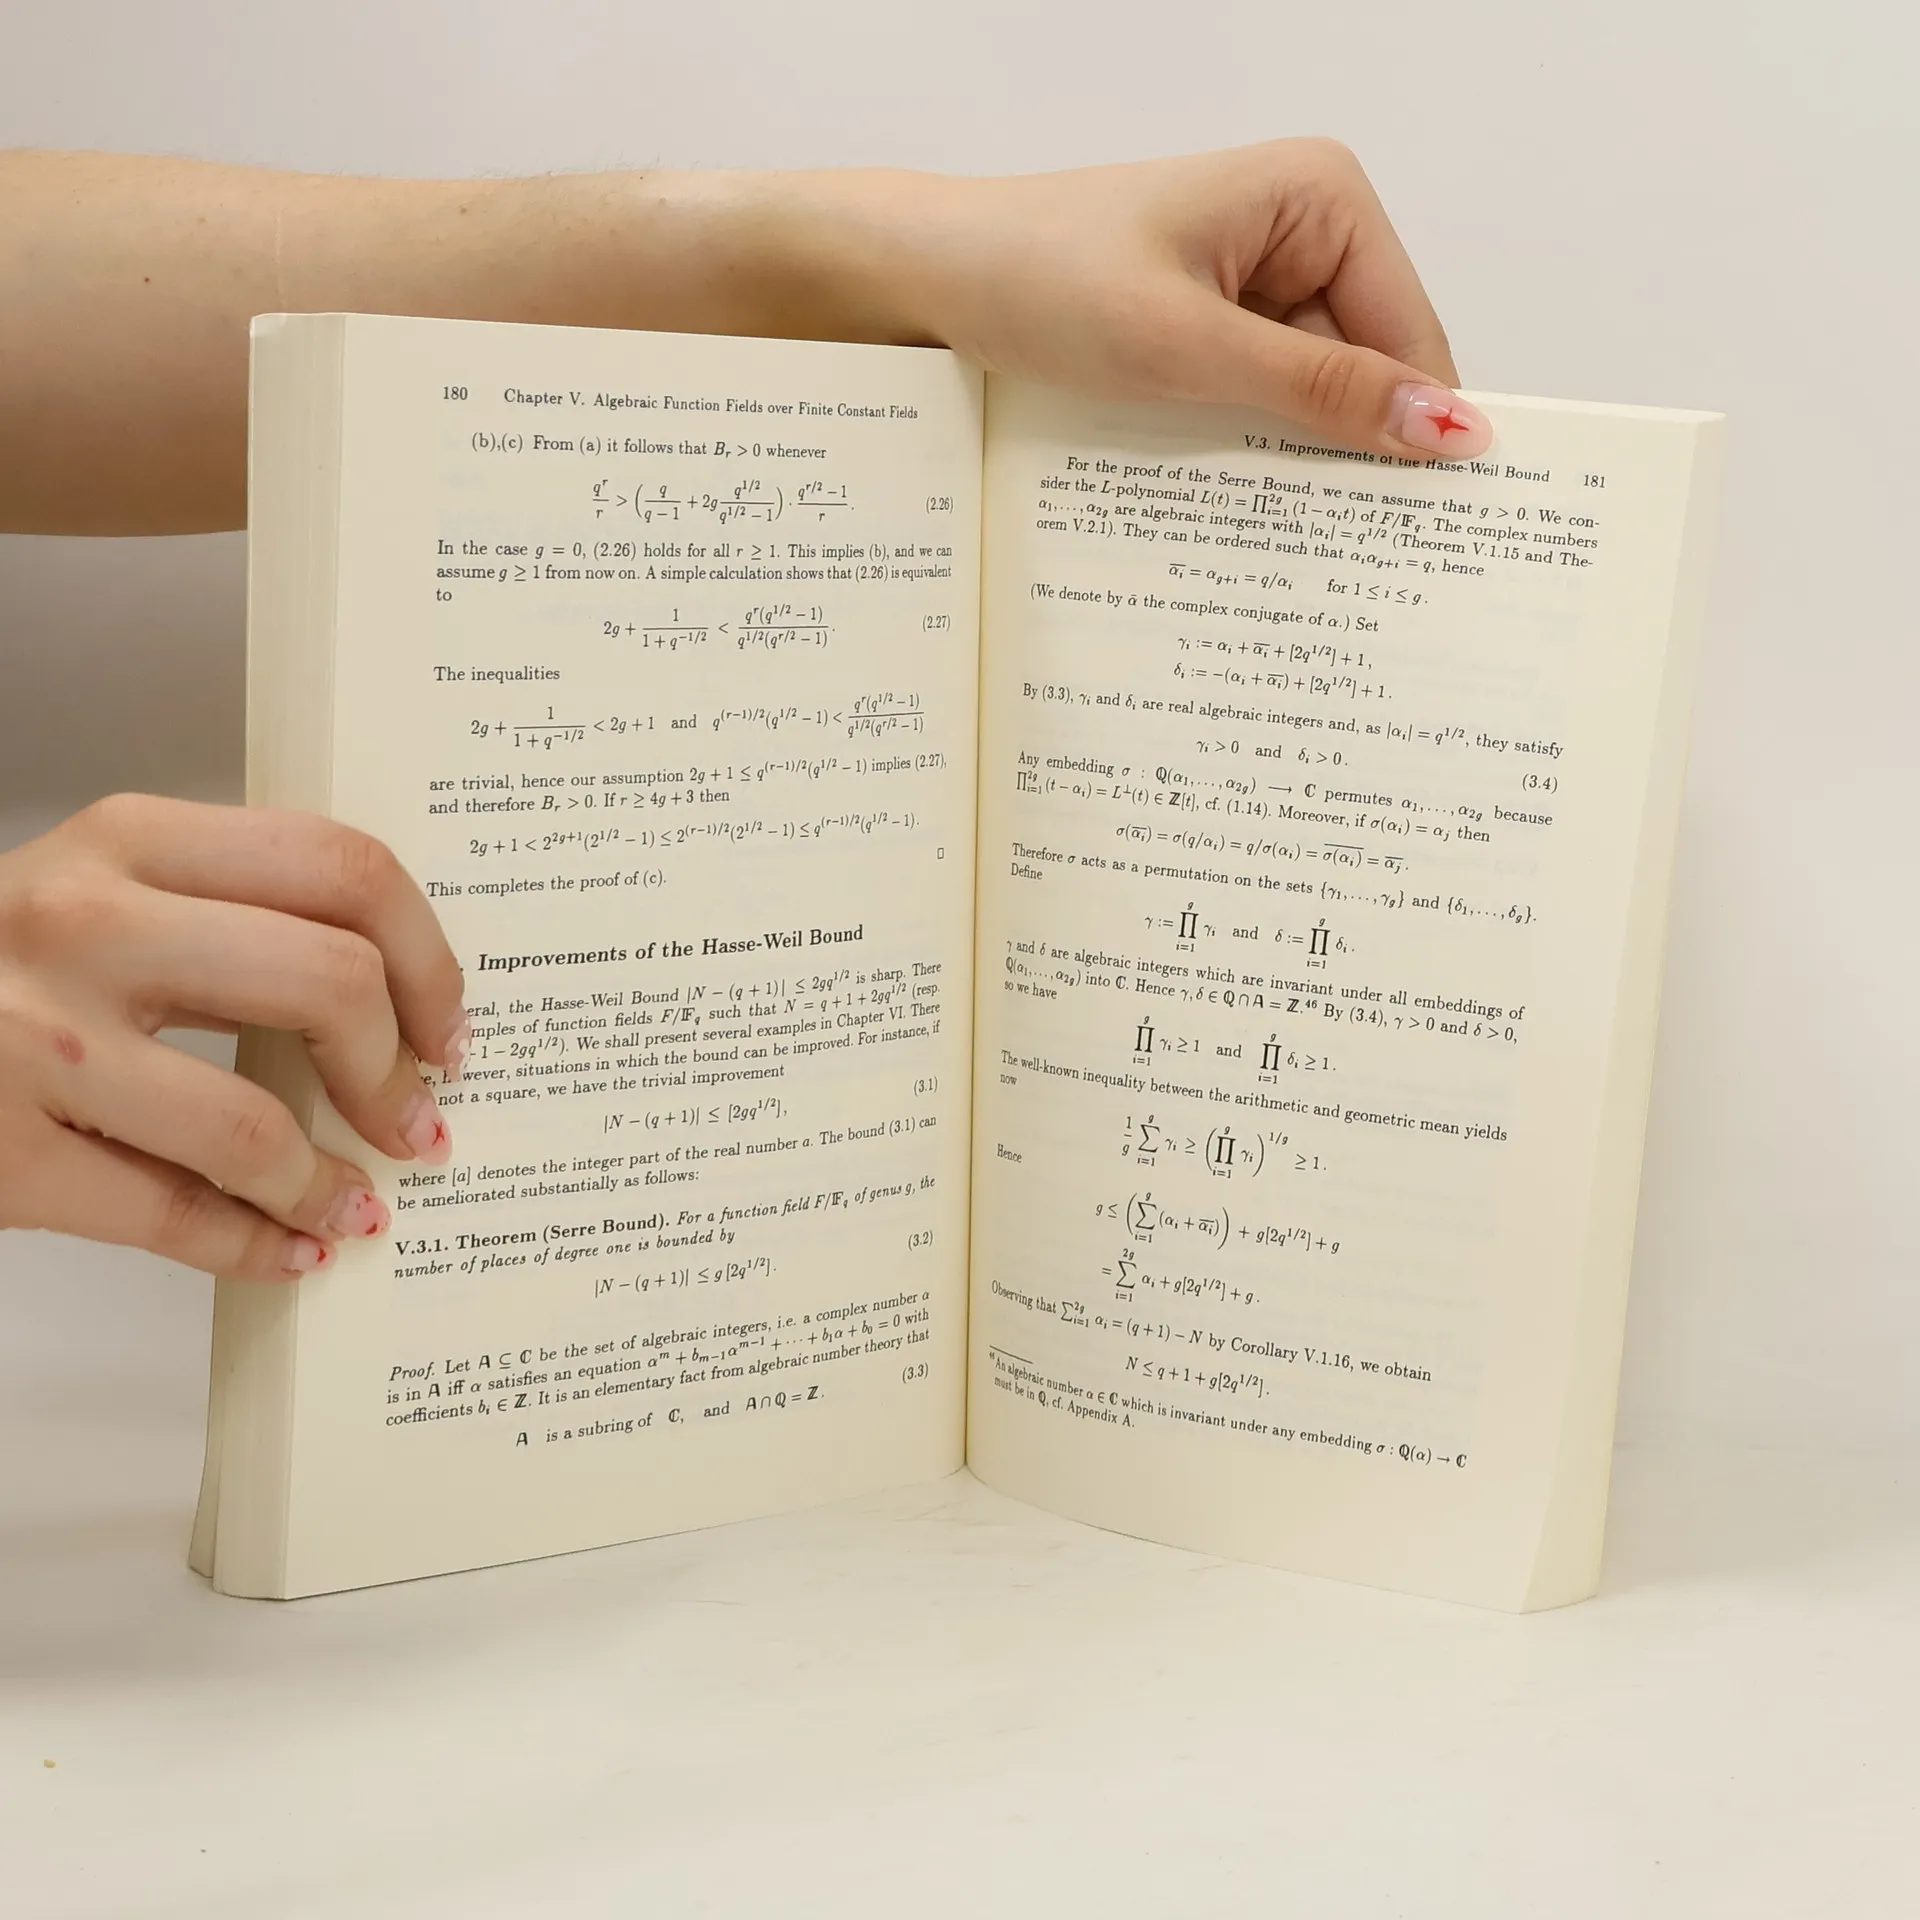 180 Chapter V. Algebraic Function Fields over Finite Constant Fields
(b),(c) From (a) it follows that B_r > 0 whenever
q^r/r > (q/(q − 1) + 2g q^{1/2}/(q^{1/2} − 1)) · (q^{r/2} − 1)/r . (2.26)
In the case g = 0, (2.26) holds for all r ≥ 1. This implies (b), and we can
assume g ≥ 1 from now on. A simple calculation shows that (2.26) is equivalent
to
2g + 1/(1 + q^{−1/2}) < q^r(q^{1/2} − 1)/(q^{1/2}(q^{r/2} − 1)) . (2.27)
The inequalities
2g + 1/(1 + q^{−1/2}) < 2g + 1 and q^{(r−1)/2}(q^{1/2} − 1) < q^r(q^{1/2} − 1)/(q^{1/2}(q^{r/2} − 1))
are trivial, hence our assumption 2g + 1 ≤ q^{(r−1)/2}(q^{1/2} − 1) implies (2.27),
and therefore B_r > 0. If r ≥ 4g + 3 then
2g + 1 < 2^{2g+1}(2^{1/2} − 1) ≤ 2^{(r−1)/2}(2^{1/2} − 1) ≤ q^{(r−1)/2}(q^{1/2} − 1).
This completes the proof of (c). □
. Improvements of the Hasse-Weil Bound
the Hasse-Weil Bound |N − (q + 1)| ≤ 2gq^{1/2} is sharp. There
of function fields F/𝔽_q such that N = q + 1 + 2gq^{1/2} (resp.
− 1 − 2gq^{1/2}). We shall present several examples in Chapter VI. There
situations in which the bound can be improved. For instance, if
not a square, we have the trivial improvement
|N − (q + 1)| ≤ [2gq^{1/2}], (3.1)
where [a] denotes the integer part of the real number a. The bound (3.1) can
be ameliorated substantially as follows:
V.3.1. Theorem (Serre Bound). For a function field F/𝔽_q of genus g, the
number of places of degree one is bounded by
|N − (q + 1)| ≤ g[2q^{1/2}]. (3.2)
Proof. Let 𝔸 ⊆ ℂ be the set of algebraic integers, i.e. a complex number α
is in 𝔸 iff α satisfies an equation α^m + b_{m−1}α^{m−1} + ··· + b_1α + b_0 = 0 with
coefficients b_i ∈ ℤ. It is an elementary fact from algebraic number theory that
𝔸 is a subring of ℂ, and 𝔸 ∩ ℚ = ℤ. (3.3)
V.3. Improvements of the Hasse-Weil Bound 181
For the proof of the Serre Bound, we can assume that g > 0. We con-
sider the L-polynomial L(t) = ∏_{i=1}^{2g} (1 − α_i t) of F/𝔽_q. The complex numbers
α_1, ..., α_{2g} are algebraic integers with |α_i| = q^{1/2} (Theorem V.1.15 and The-
orem V.2.1). They can be ordered such that α_i α_{g+i} = q, hence
ᾱ_i = α_{g+i} = q/α_i for 1 ≤ i ≤ g.
(We denote by ᾱ the complex conjugate of α.) Set
γ_i := α_i + ᾱ_i + [2q^{1/2}] + 1,
δ_i := −(α_i + ᾱ_i) + [2q^{1/2}] + 1.
By (3.3), γ_i and δ_i are real algebraic integers and, as |α_i| = q^{1/2}, they satisfy
γ_i > 0 and δ_i > 0. (3.4)
Any embedding σ : ℚ(α_1, ..., α_{2g}) ⟶ ℂ permutes α_1, ..., α_{2g} because
∏_{i=1}^{2g} (t − α_i) = L^⊥(t) ∈ ℤ[t], cf. (1.14). Moreover, if σ(α_i) = α_j then
σ(ᾱ_i) = σ(q/α_i) = q/σ(α_i) = \overline{σ(α_i)} = ᾱ_j.
Therefore σ acts as a permutation on the sets {γ_1, ..., γ_g} and {δ_1, ..., δ_g}.
Define
γ := ∏_{i=1}^{g} γ_i and δ := ∏_{i=1}^{g} δ_i .
γ and δ are algebraic integers which are invariant under all embeddings of
ℚ(α_1, ..., α_{2g}) into ℂ. Hence γ, δ ∈ ℚ ∩ 𝔸 = ℤ.^{46} By (3.4), γ > 0 and δ > 0,
so we have
∏_{i=1}^{g} γ_i ≥ 1 and ∏_{i=1}^{g} δ_i ≥ 1.
The well-known inequality between the arithmetic and geometric mean yields
now
1/g ∑_{i=1}^{g} γ_i ≥ (∏_{i=1}^{g} γ_i)^{1/g} ≥ 1.
Hence
g ≤ (∑_{i=1}^{g} (α_i + ᾱ_i)) + g[2q^{1/2}] + g
= ∑_{i=1}^{2g} α_i + g[2q^{1/2}] + g.
Observing that ∑_{i=1}^{2g} α_i = (q + 1) − N by Corollary V.1.16, we obtain
N ≤ q + 1 + g[2q^{1/2}].
^{46} An algebraic number α ∈ ℂ which is invariant under any embedding σ : ℚ(α) → ℂ
must be in ℚ, cf. Appendix A.